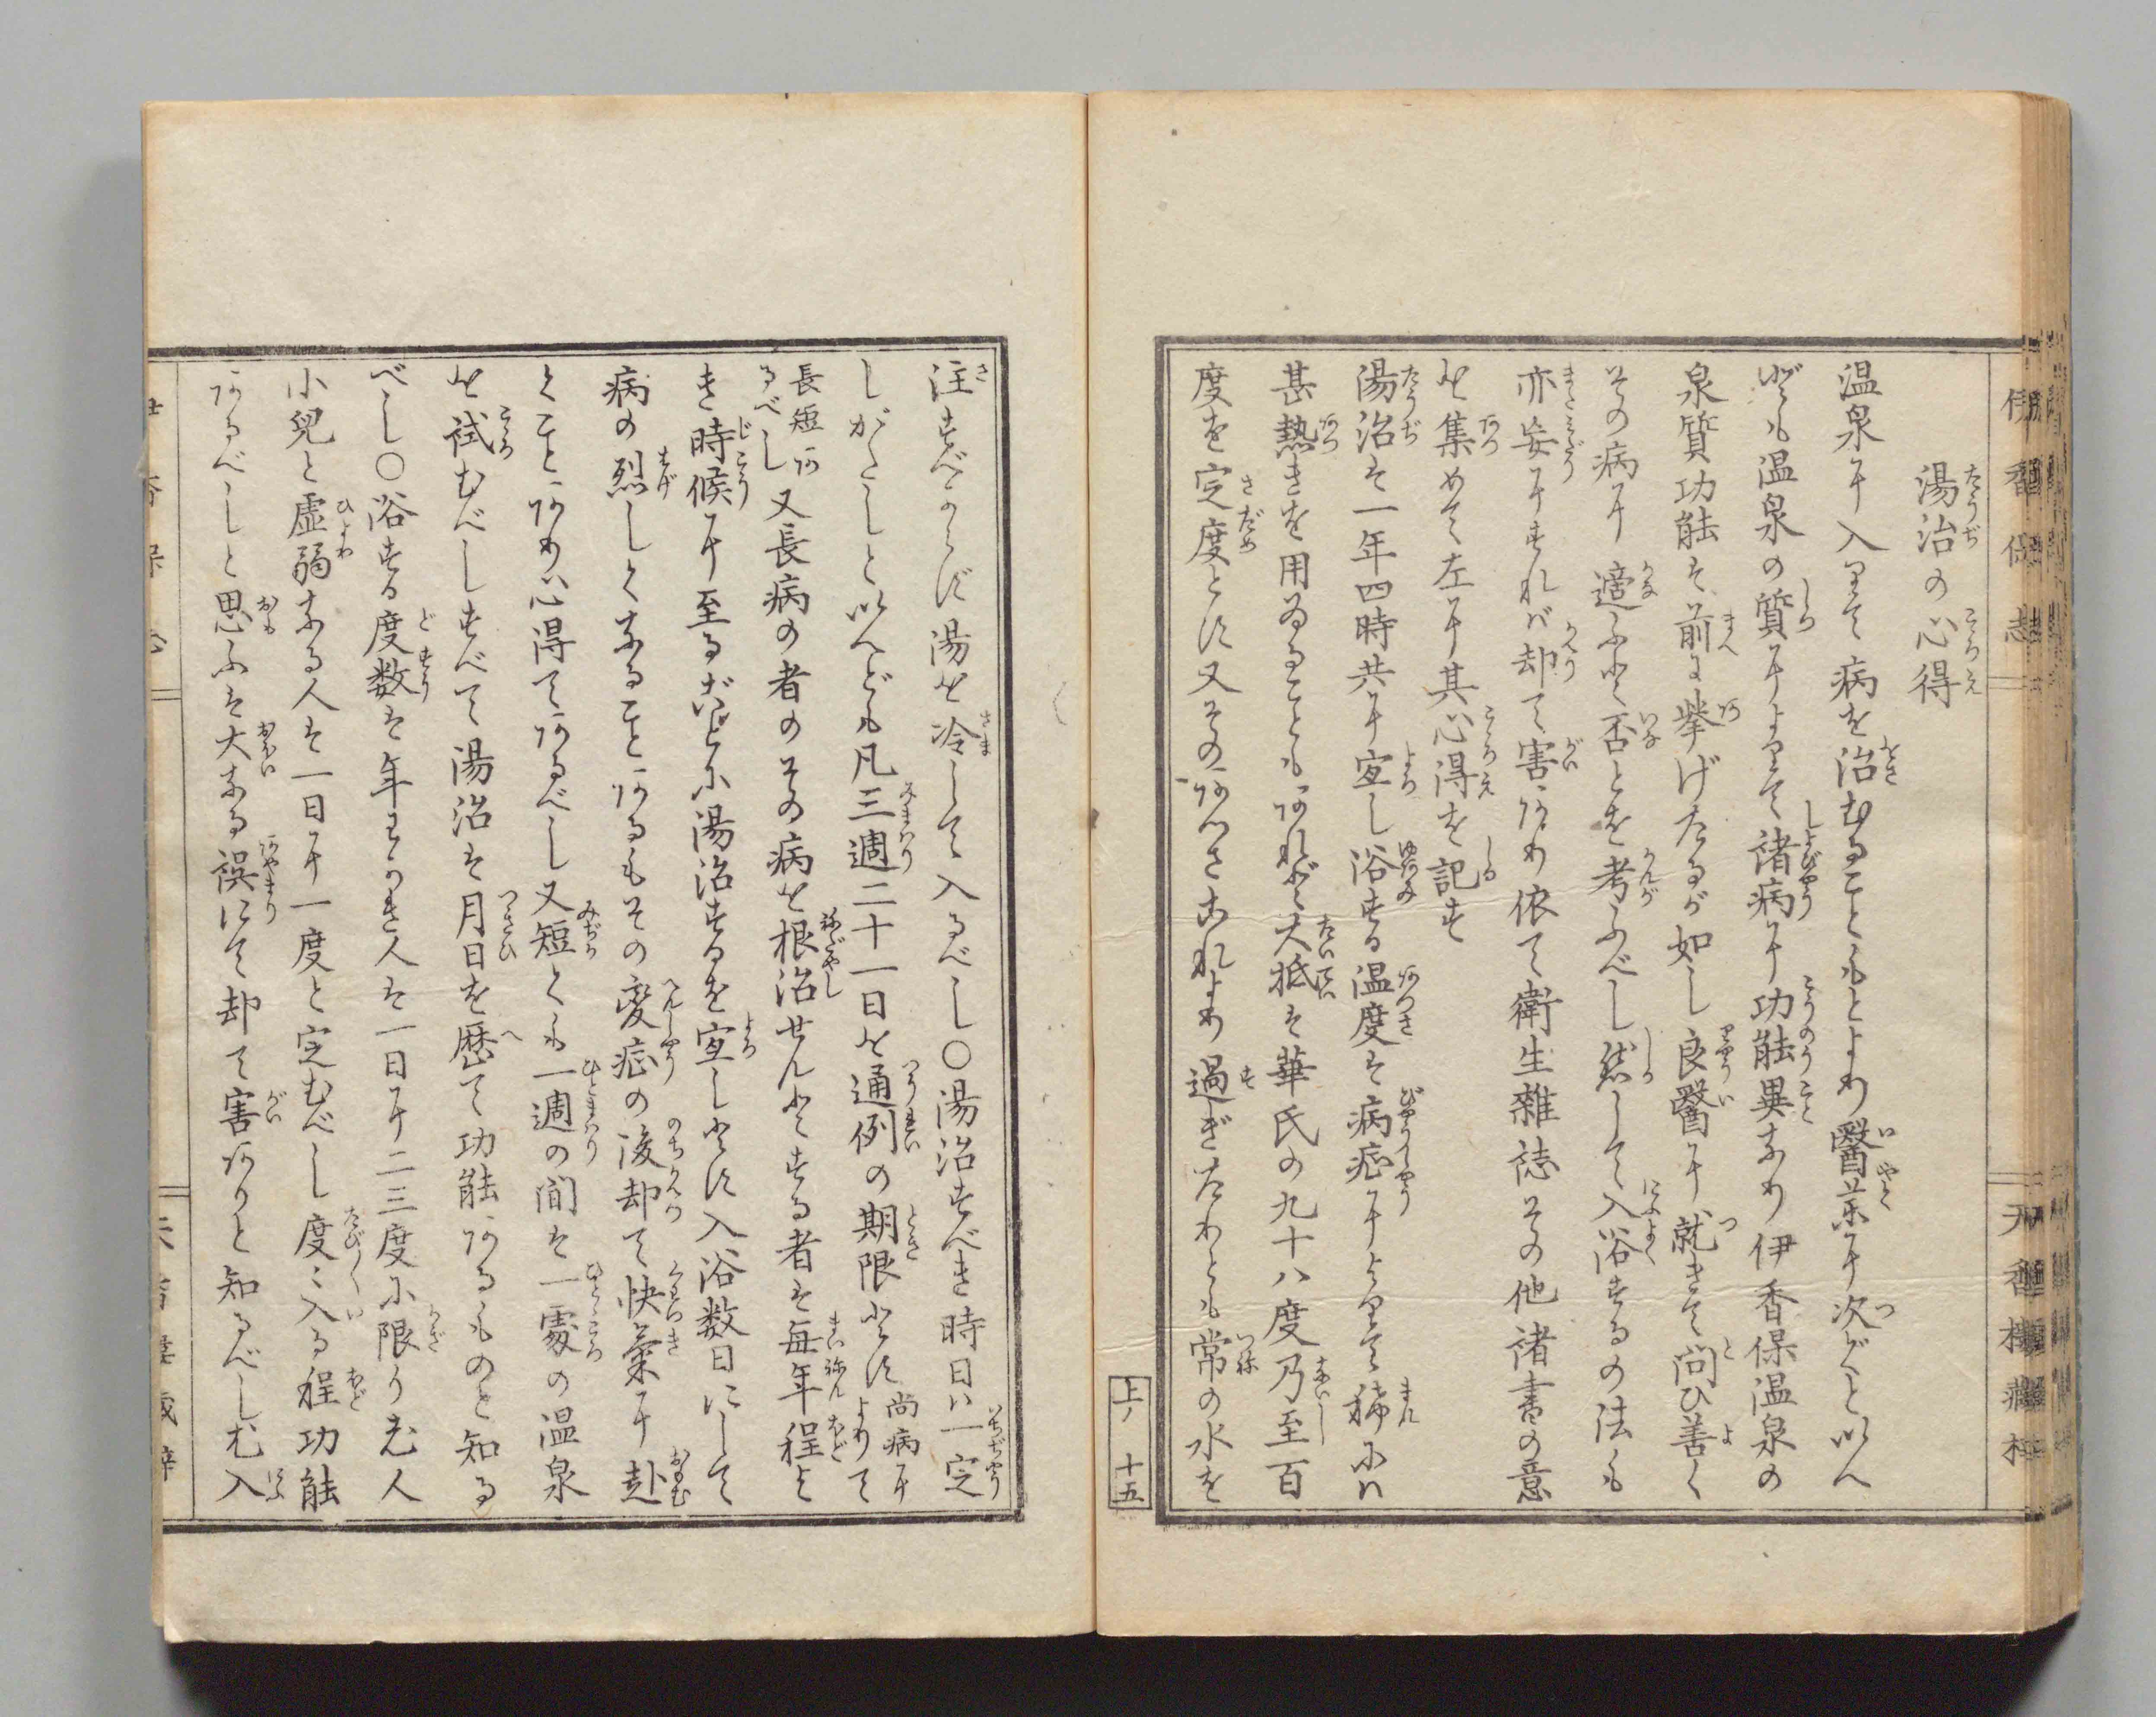 伊香保志
湯治の心得
温泉に入りて病を治むることもとより醫薬に次ぐと以へ
ども温泉の質によりて諸病に功能異なり伊香保温泉の
泉質功能は前に挙げたるが如し良醫に就きて問ひ善く
その病に適ふと否とを考ふべし然して入浴するの法も
亦妄にすれば却て害あり依て衛生雑誌その他諸書の意
を集めて左に其心得を記す
湯治は一年四時共に宜し浴する温度は病症によりて稀には
甚熱きを用ゐることもあれど大抵は華氏の九十八度乃至百
度を定度とす又その あつさこれより過ぎたりとも常の水を
上ノ 十五
注すべからず湯を冷して入るべし○湯治すべき時日は一定
しがたしと以へども凡三週二十一日を通例の期限とす尚病によりて
長短あるべし又長病の者のその病を根治せんとする者は毎年程よ
き時候に至るごとに湯治するを宜しとす入浴数日にして
病の烈しくなることあるもその変症の後却て快氣に赴
くことあり心得てあるべし又短くも一週の間は一處の温泉
を試むべしすべて湯治は月日を歴て功能あるものと知る
べし○浴する度数は年わかき人は一日に二三度に限り老人
小兒と虚弱なる人は一日に一度と定むべし度〻入る程功能
あるべしと思ふは大なる誤にて却て害ありと知るべし尤入